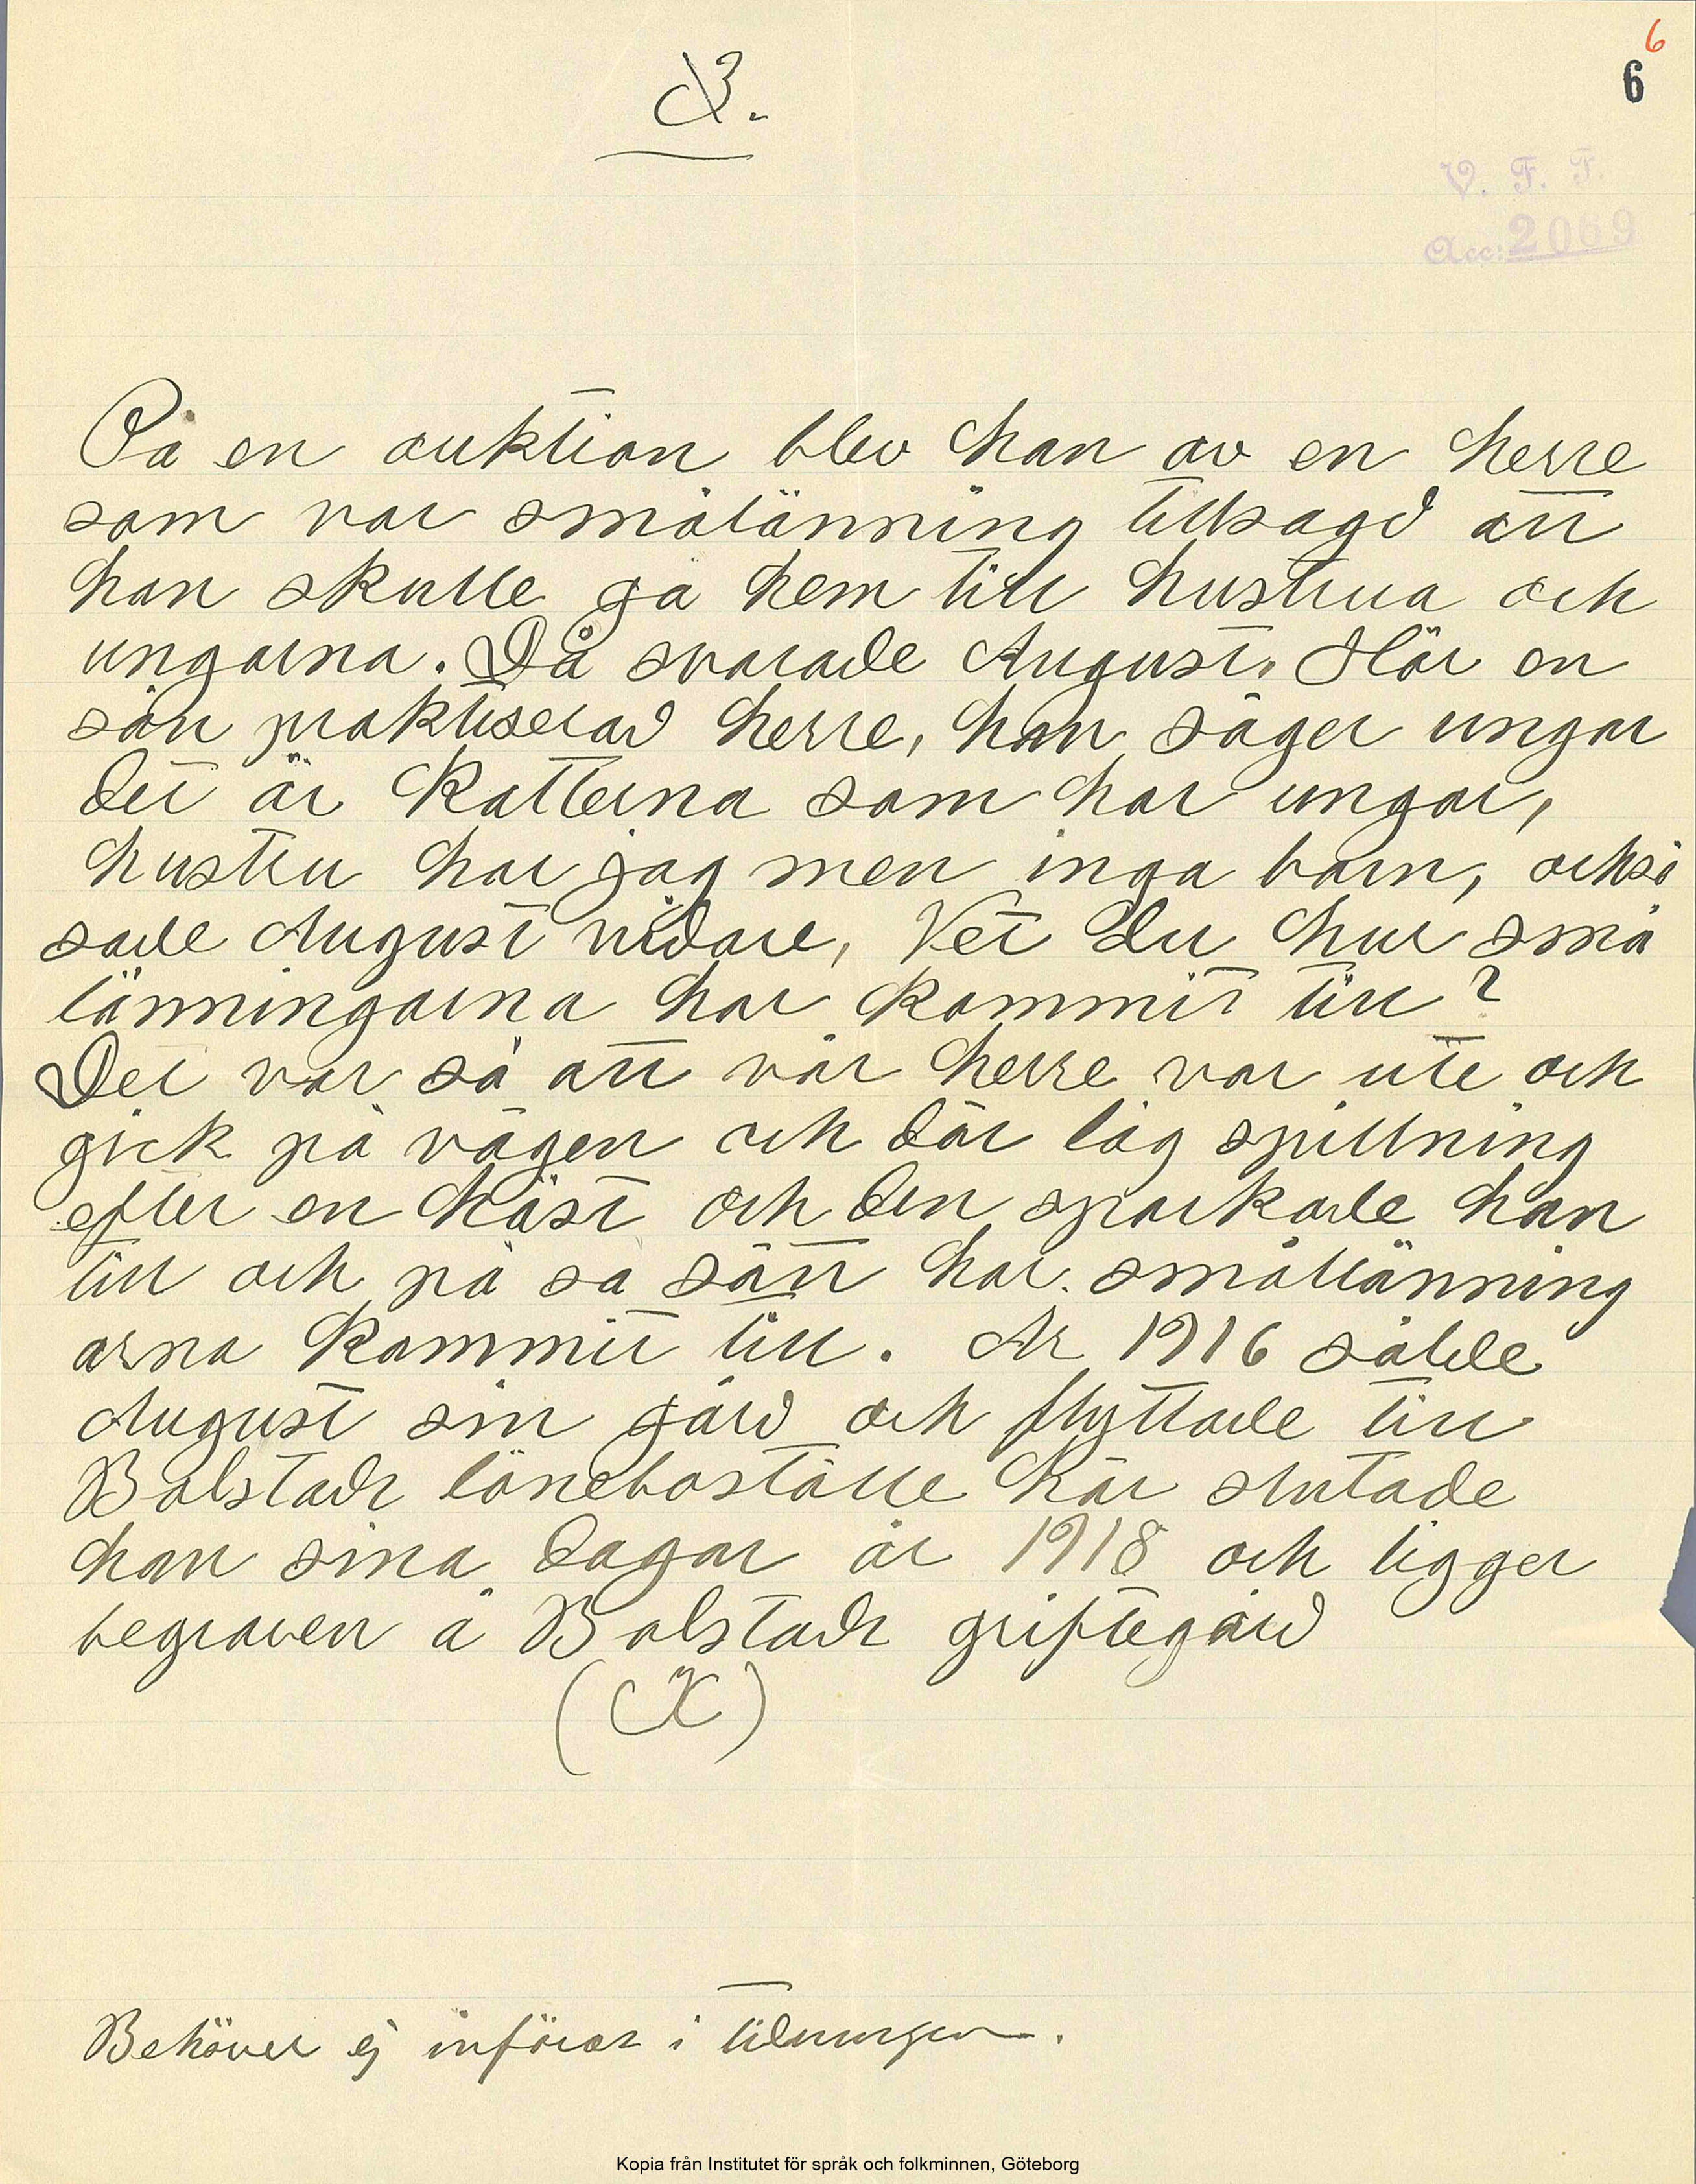 6
6
3.
V. F. F.
Acc: 2069
På en auktion blev han av en herre
som var smålänning tillsagd att
han skulle gå hem till hustrua och
ungarna. Då svarade August. Hör en
sån praktiserad herre, han säger ungar
det är katterna som har ungar,
hustru har jag men inga barn, också
sade August vidare, Vet du hur små
länningarna har kommit till?
Det var så att vår herre var ute och
gick på vägen och där låg spillning
efter en häst och den sparkade han
till och på så sätt har smållänning
arna kommit till. År 1916 sålde
August sin gård och flyttade till
Bolstads löneboställe här slutade
han sina dagar år 1918 och ligger
begraven å Bolstads griftegård
(K)
Behöver ej införas i tidningen.
Kopia från Institutet för språk och folkminnen, Göteborg